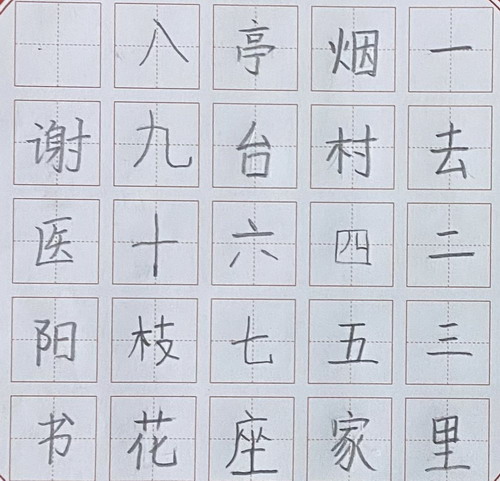 一去二三里
烟村四五家
亭台六七座
八九十枝花
谢医阳书